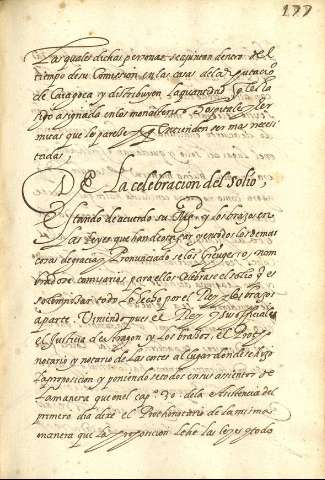 177
Las quales dichas personas se ajuntan dentro del
tiempo de su Comission en las casas de la Diputacio
de Çaragoça y distribuyen la quantidad q̃ les ha
sido asignada en los monasterios Hospitales y er
mitas que les pareße y q̃ Entienden ser mas necesi
tadas,
De La celebracion del solio,
Estando de acuerdo su Mag. y los brazos en
las leyes que han de otorgar y en todos los demas
cosas de gracia y Pronunciado se los Greuges y nom
brados comisarios para ello Celebrase el solio q̃ es
solemnisar todo lo hecho por el Rey y los brazos
aparte. Viniendo pues el Rey y sus officiales
el Justicia de Aragon y los brazos, el Proto
notario y notario de las cortes al lugar donde se hizo
la proposicion y poniendose todos en sus assientos de
la manera que en el cap.º 30. de la Asistencia del
primero dia dixe el Prothonotario de la misma
manera que la proposicion lehe las leyes y todo